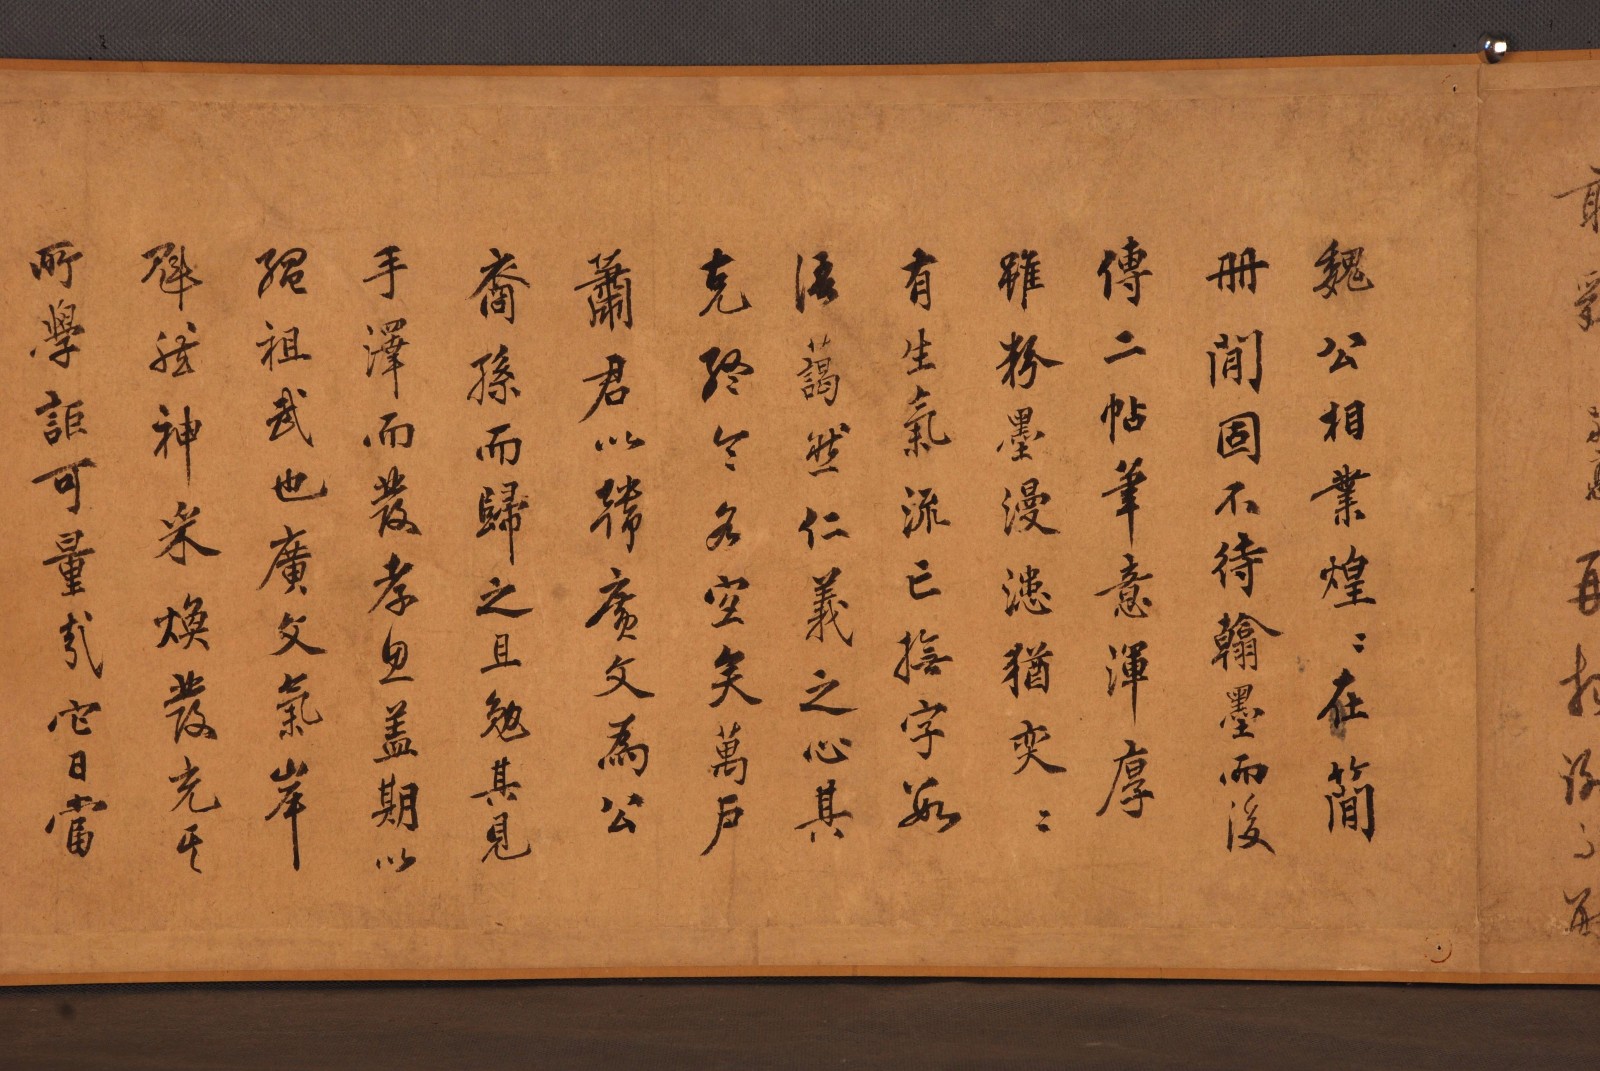 再
魏公相業煌〻在簡
冊間固不待翰墨而後
傳二帖筆意渾厚
雖粉墨漫漶猶奕〻
有生氣流亡撫字數
語藹然仁義之心其
克終令名宜矣萬戶
蕭君以韓廣文為公
裔孫而歸之且勉其見
手澤而發孝思盖期以
繩祖武也廣文氣岸
魁然神采煥發充其
所學詎可量哉它日當